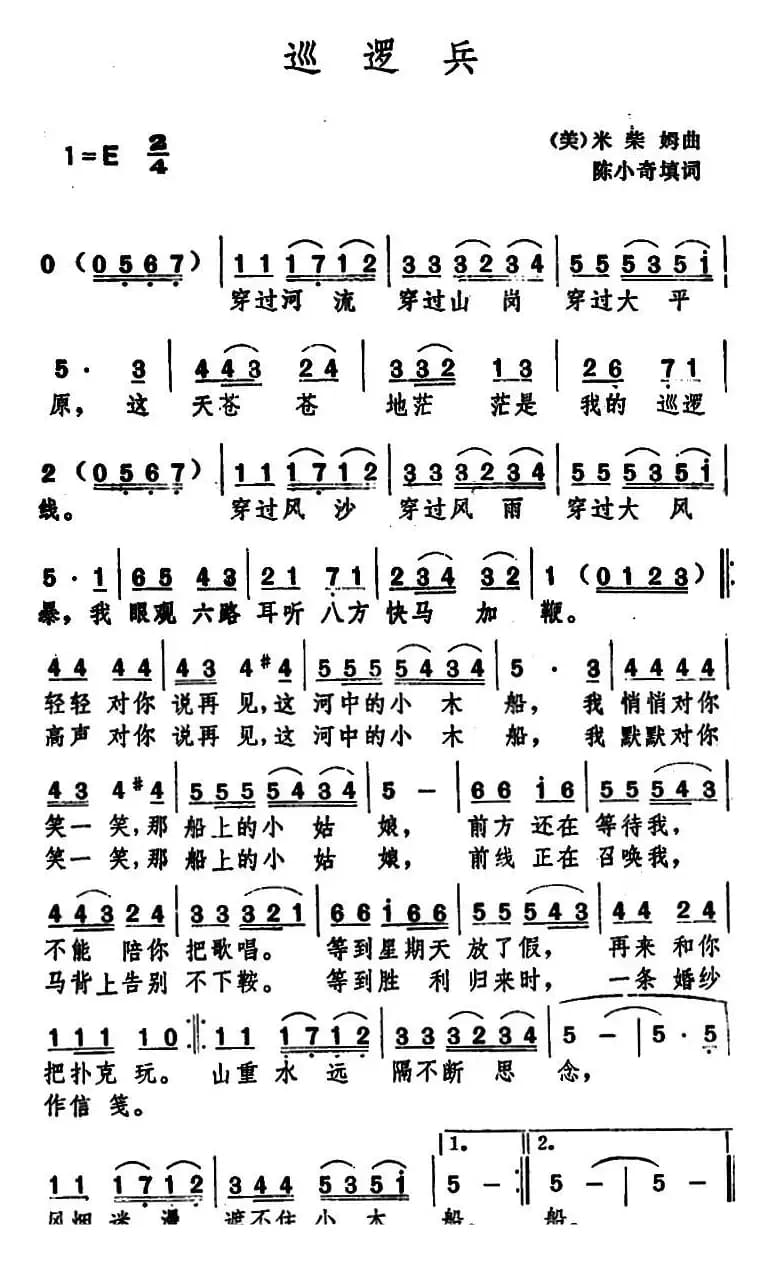 巡逻兵
1=E 2/4
（美）米柴姆曲
陈小奇填词
0 （0567） | 11 1712 | 333 3234 | 555 5351 |
穿过河流 穿过山岗 穿过大平
5· 3 | 443 24 | 332 13 | 26 71 |
原，这 天苍苍 地茫茫是 我的巡逻
2 （0567） | 111 1712 | 333 3234 | 555 5351 |
线。 穿过风沙 穿过风雨 穿过大风
5· 1 | 65 43 | 21 71 | 234 32 | 1 （0123） ‖:
暴，我 眼观六路 耳听八方 快马加鞭。
44 44 | 43 4#4 | 555 5434 | 5· 3 | 44 44 |
轻轻对你 说再见，这 河中的小木船， 我 悄悄对你
高声对你 说再见，这 河中的小木船， 我 默默对你
43 4#4 | 555 5434 | 5 - | 66 i6 | 55 543 |
笑一笑，那 船上的小姑娘， 前方还在 等待我，
笑一笑，那 船上的小姑娘， 前线正在 召唤我，
443 24 | 33 321 | 66 i66 | 55 543 | 44 24 |
不能陪你 把歌唱。 等到星期天 放了假， 再来和你
马背上告别 不下鞍。 等到胜利 归来时， 一条婚纱
111 10 :‖: 11 1712 | 333 3234 | 5 - | 5· 5 |
把扑克玩。 山重水远 隔不断思念，
作信笺。
1. 2.
11 1712 | 344 5351 | 5 - :‖ 5 - | 5 - ‖
风烟迷漫 遮不住小木船。 船。